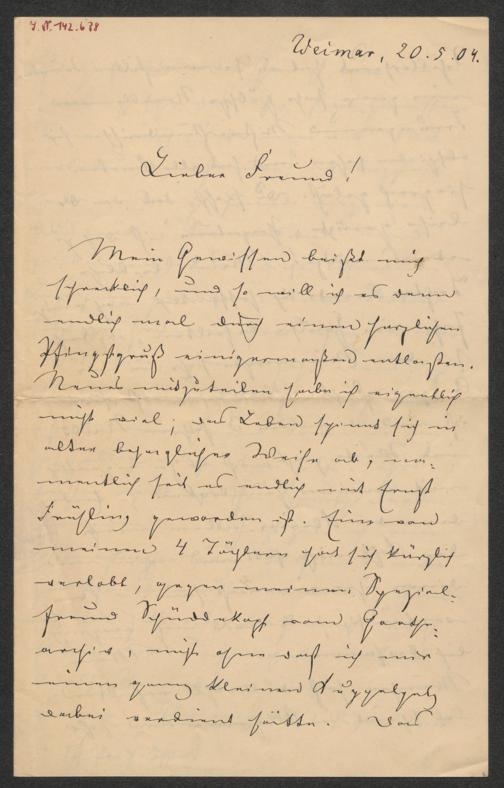 I.N. 142.678
Weimar, 20.5.04.
Lieber Freund!
Mein Gewissen beißt mich
schrecklich, und so will ich es denn
endlich mal durch einen herzlichen
Pfingstgruß einigermaßen entlasten.
Neues mitzuteilen habe ich eigentlich
nicht viel, das Leben spinnt sich in
alter behaglicher Weise ab, na-
mentlich seit es endlich mit Ernst
Frühling geworden ist. Eine von
meinen 4 Töchtern hat sich kürzlich
verlobt, gegen meinen Spezial-
freund Schüddekopf vom Goethe-
archiv, nicht ohne daß ich mir
einen ganz kleinen Kuppelpelz
dabei verdient hätte. Das